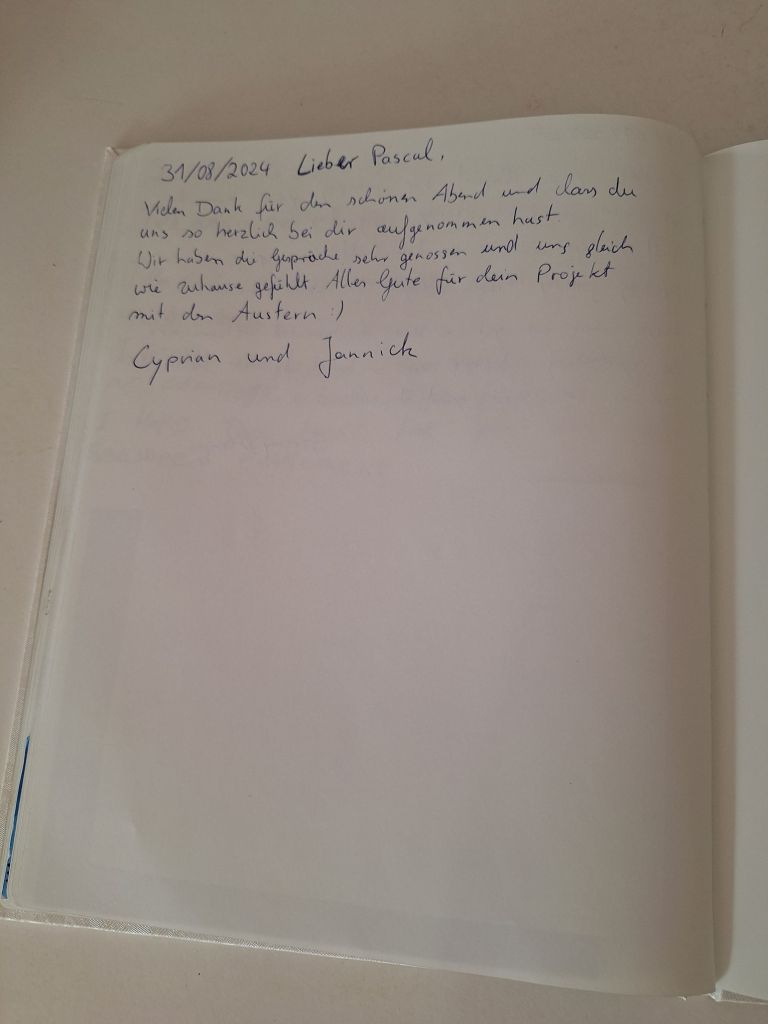 31/08/2024 Lieber Pascal,
Vielen Dank für den schönen Abend und dass du
uns so herzlich bei dir aufgenommen hast.
Wir haben die Gespräche sehr genossen und uns gleich
wie zuhause gefühlt. Alles Gute für dein Projekt
mit den Austern :)
Cyprian und Jannick